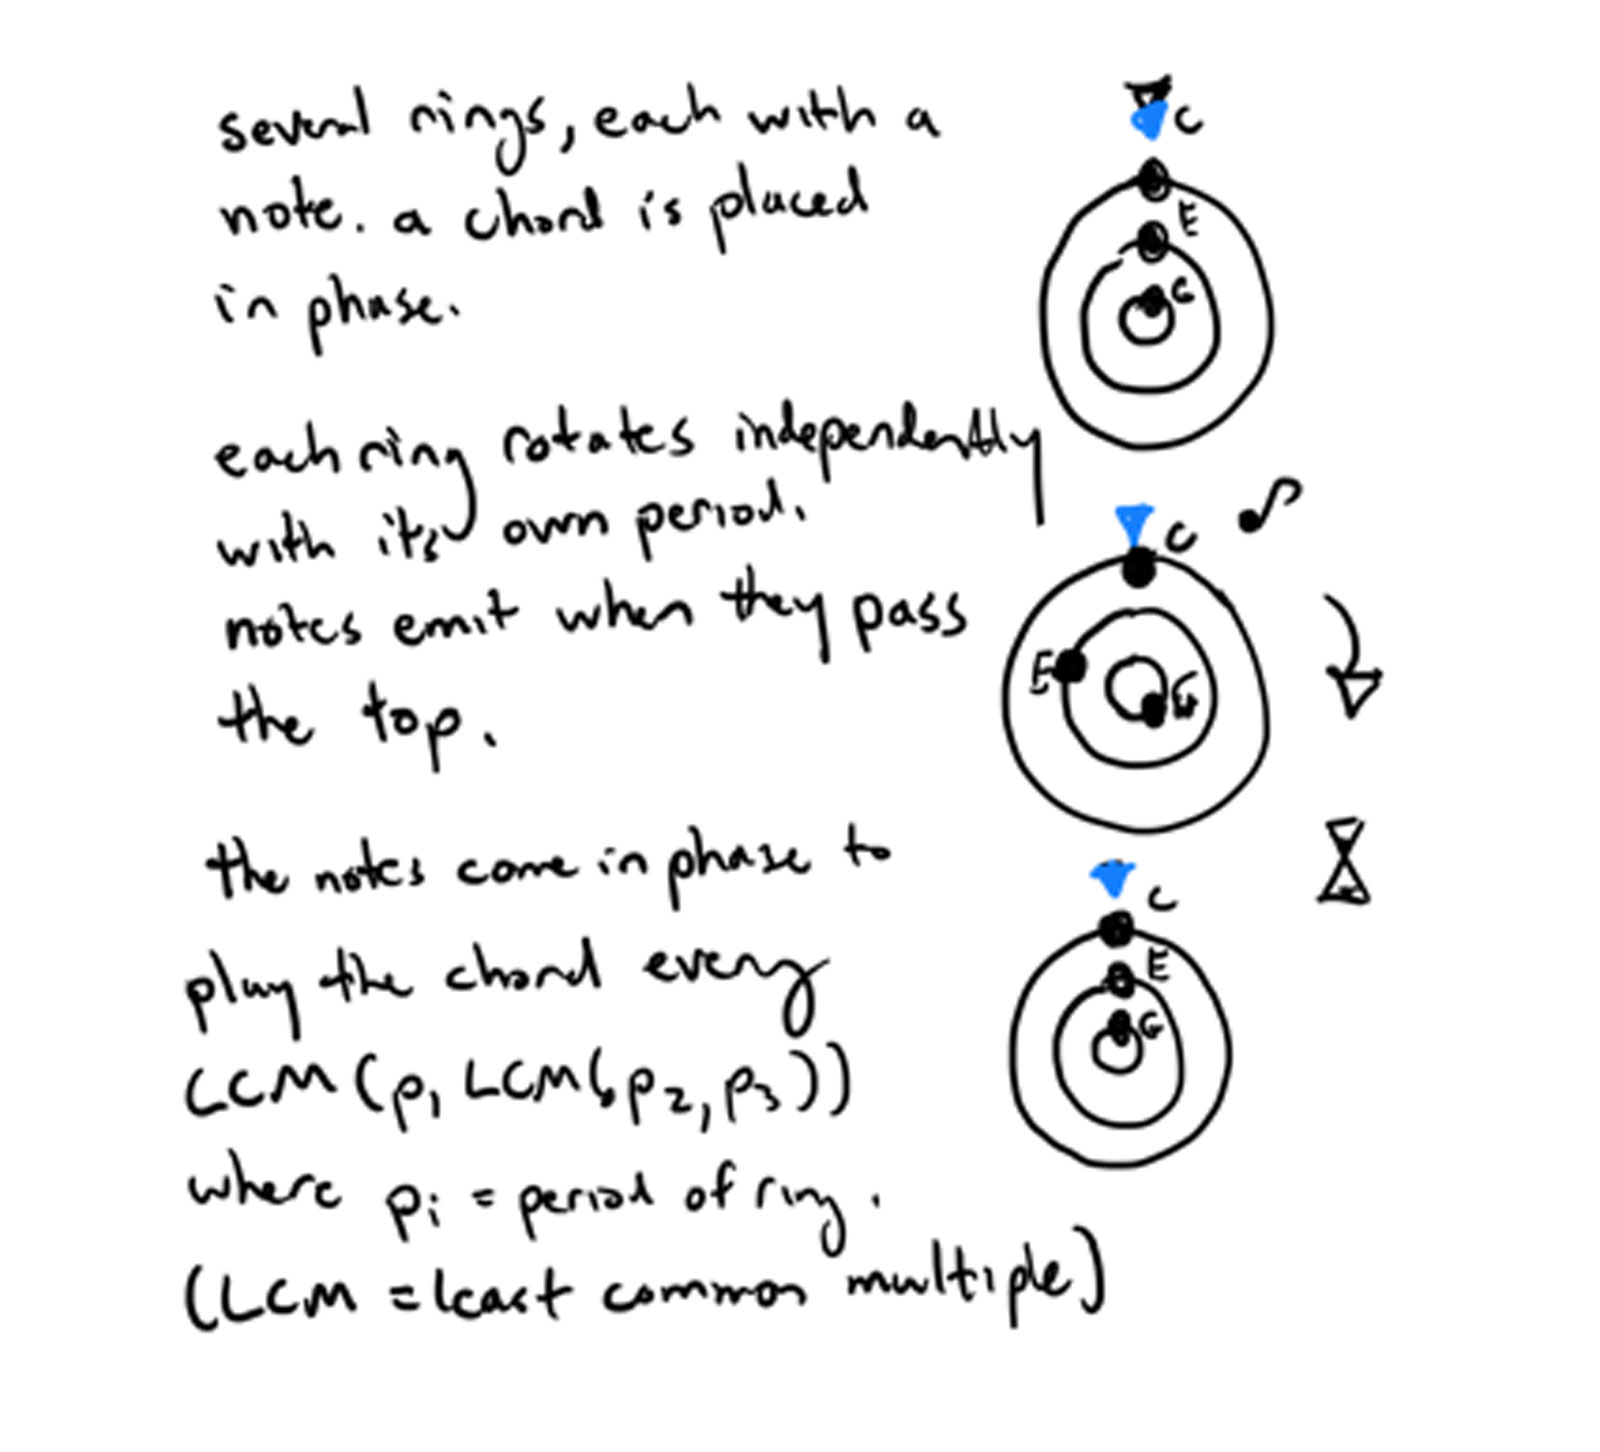 several rings, each with a
note. a chord is placed
in phase.
each ring rotates independently
with its own period.
notes emit when they pass
the top.
the notes come in phase to
play the chord every
LCM(p, LCM(p2, p3))
where pi = period of ring.
(LCM = least common multiple)
C
E
G
C
E
G
C
E
G